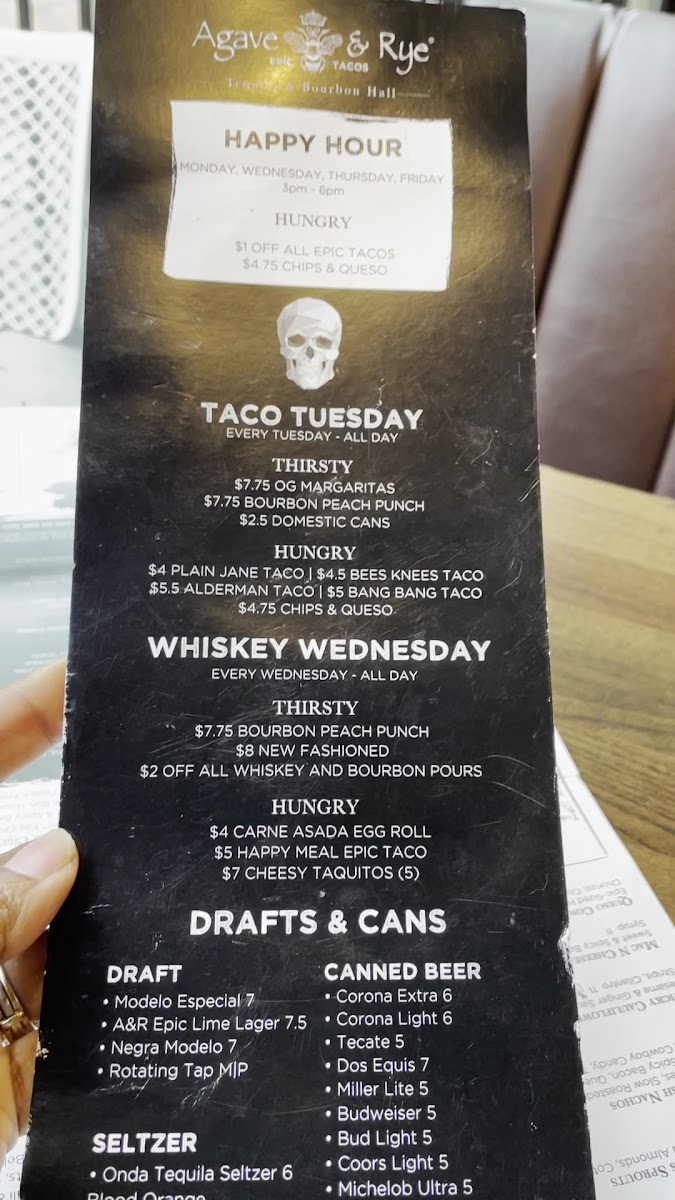 Agave & Rye®
EPIC TACOS
Tequila & Bourbon Hall
HAPPY HOUR
MONDAY, WEDNESDAY, THURSDAY, FRIDAY
3pm - 6pm
HUNGRY
$1 OFF ALL EPIC TACOS
$4.75 CHIPS & QUESO
TACO TUESDAY
EVERY TUESDAY - ALL DAY
THIRSTY
$7.75 OG MARGARITAS
$7.75 BOURBON PEACH PUNCH
$2.5 DOMESTIC CANS
HUNGRY
$4 PLAIN JANE TACO | $4.5 BEES KNEES TACO
$5.5 ALDERMAN TACO | $5 BANG BANG TACO
$4.75 CHIPS & QUESO
WHISKEY WEDNESDAY
EVERY WEDNESDAY - ALL DAY
THIRSTY
$7.75 BOURBON PEACH PUNCH
$8 NEW FASHIONED
$2 OFF ALL WHISKEY AND BOURBON POURS
HUNGRY
$4 CARNE ASADA EGG ROLL
$5 HAPPY MEAL EPIC TACO
$7 CHEESY TAQUITOS (5)
DRAFTS & CANS
DRAFT
• Modelo Especial 7
• A&R Epic Lime Lager 7.5
• Negra Modelo 7
• Rotating Tap M|P
SELTZER
• Onda Tequila Seltzer 6
Blood Orange
CANNED BEER
• Corona Extra 6
• Corona Light 6
• Tecate 5
• Dos Equis 7
• Miller Lite 5
• Budweiser 5
• Bud Light 5
• Coors Light 5
• Michelob Ultra 5
SPROUTS
Almonds,
NACHOS
Slow Roasted
Cowboy Candy,
CAULIFLOWER
Sesame & Ginger
Strips, Cilantro 11
MAC N CHEESE
Sweet & Spicy
Syrup 11
QUESO